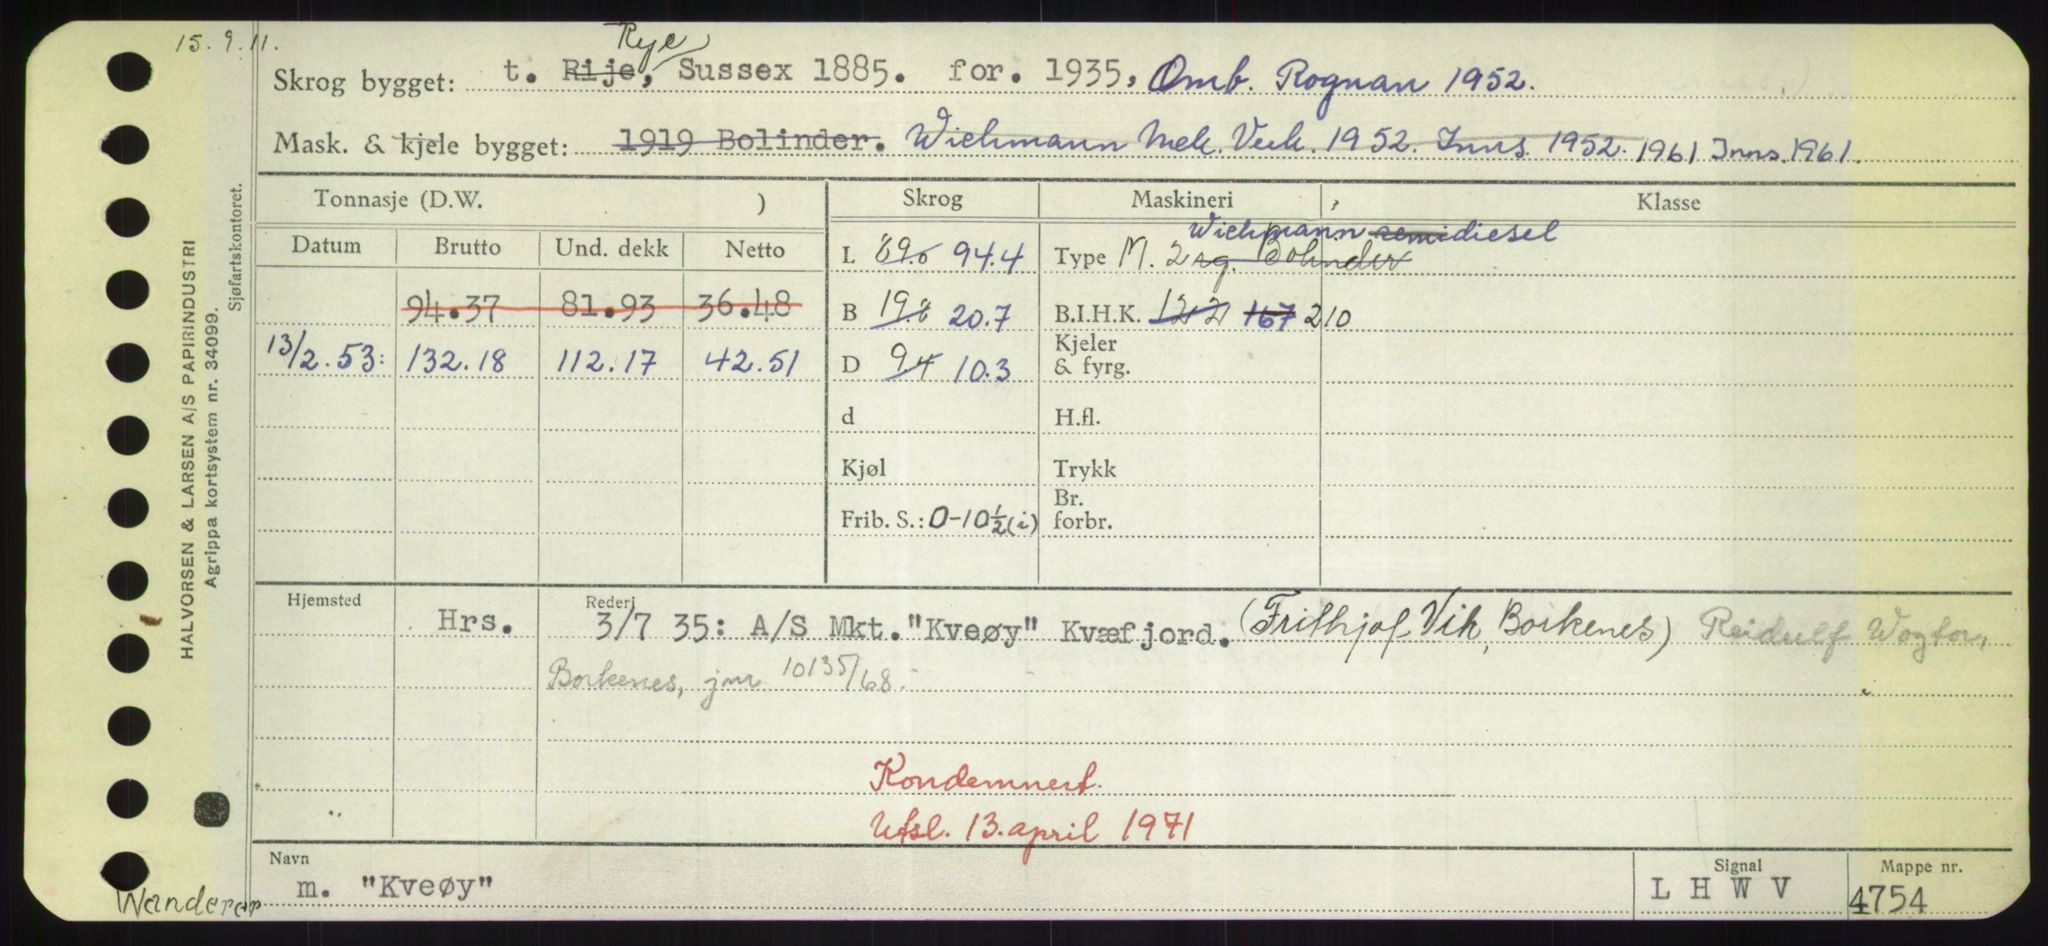 15. 9. 11.
Rye
Skrog bygget: t. Rije, Sussex 1885. for. 1935, Omb. Rognan 1952.
Mask. & kjele bygget: 1919 Bolinder. Wichmann Mek. Verk. 1952. Inns. 1952. 1961 Inns. 1961.
Tonnasje (D.W. ) Skrog Maskineri Klasse
Datum Brutto Und. dekk Netto
L 94.4
Wichmann semidiesel
Type M. 2 sg. Bolinder
94.37 81.93 36.48
B 19.8 20.7
B.I.H.K. 122 167 210
13/2.53: 132.18 112.17 42.51
D 9.4 10.3
Kjeler
& fyrg.
d
H.fl.
Kjøl
Trykk
Frib. S.: 0-10½(i)
Br.
forbr.
Hjemsted
Rederi
Hrs. 3/7 35: A/S Mkt. "Kveøy" Kvæfjord. (Frithjof Vik, Borkenes) Reidulf
Borkenes, jnr 10135/68.
Kondemnert.
Utsl. 13. april 1971
Navn
m. "Kveøy"
Signal
L H W V
Mappe nr.
4754
Wanderer
HALVORSEN & LARSEN A/S PAPIRINDUSTRI
Agrippa kortsystem nr. 34099.
Sjøfartskontoret.